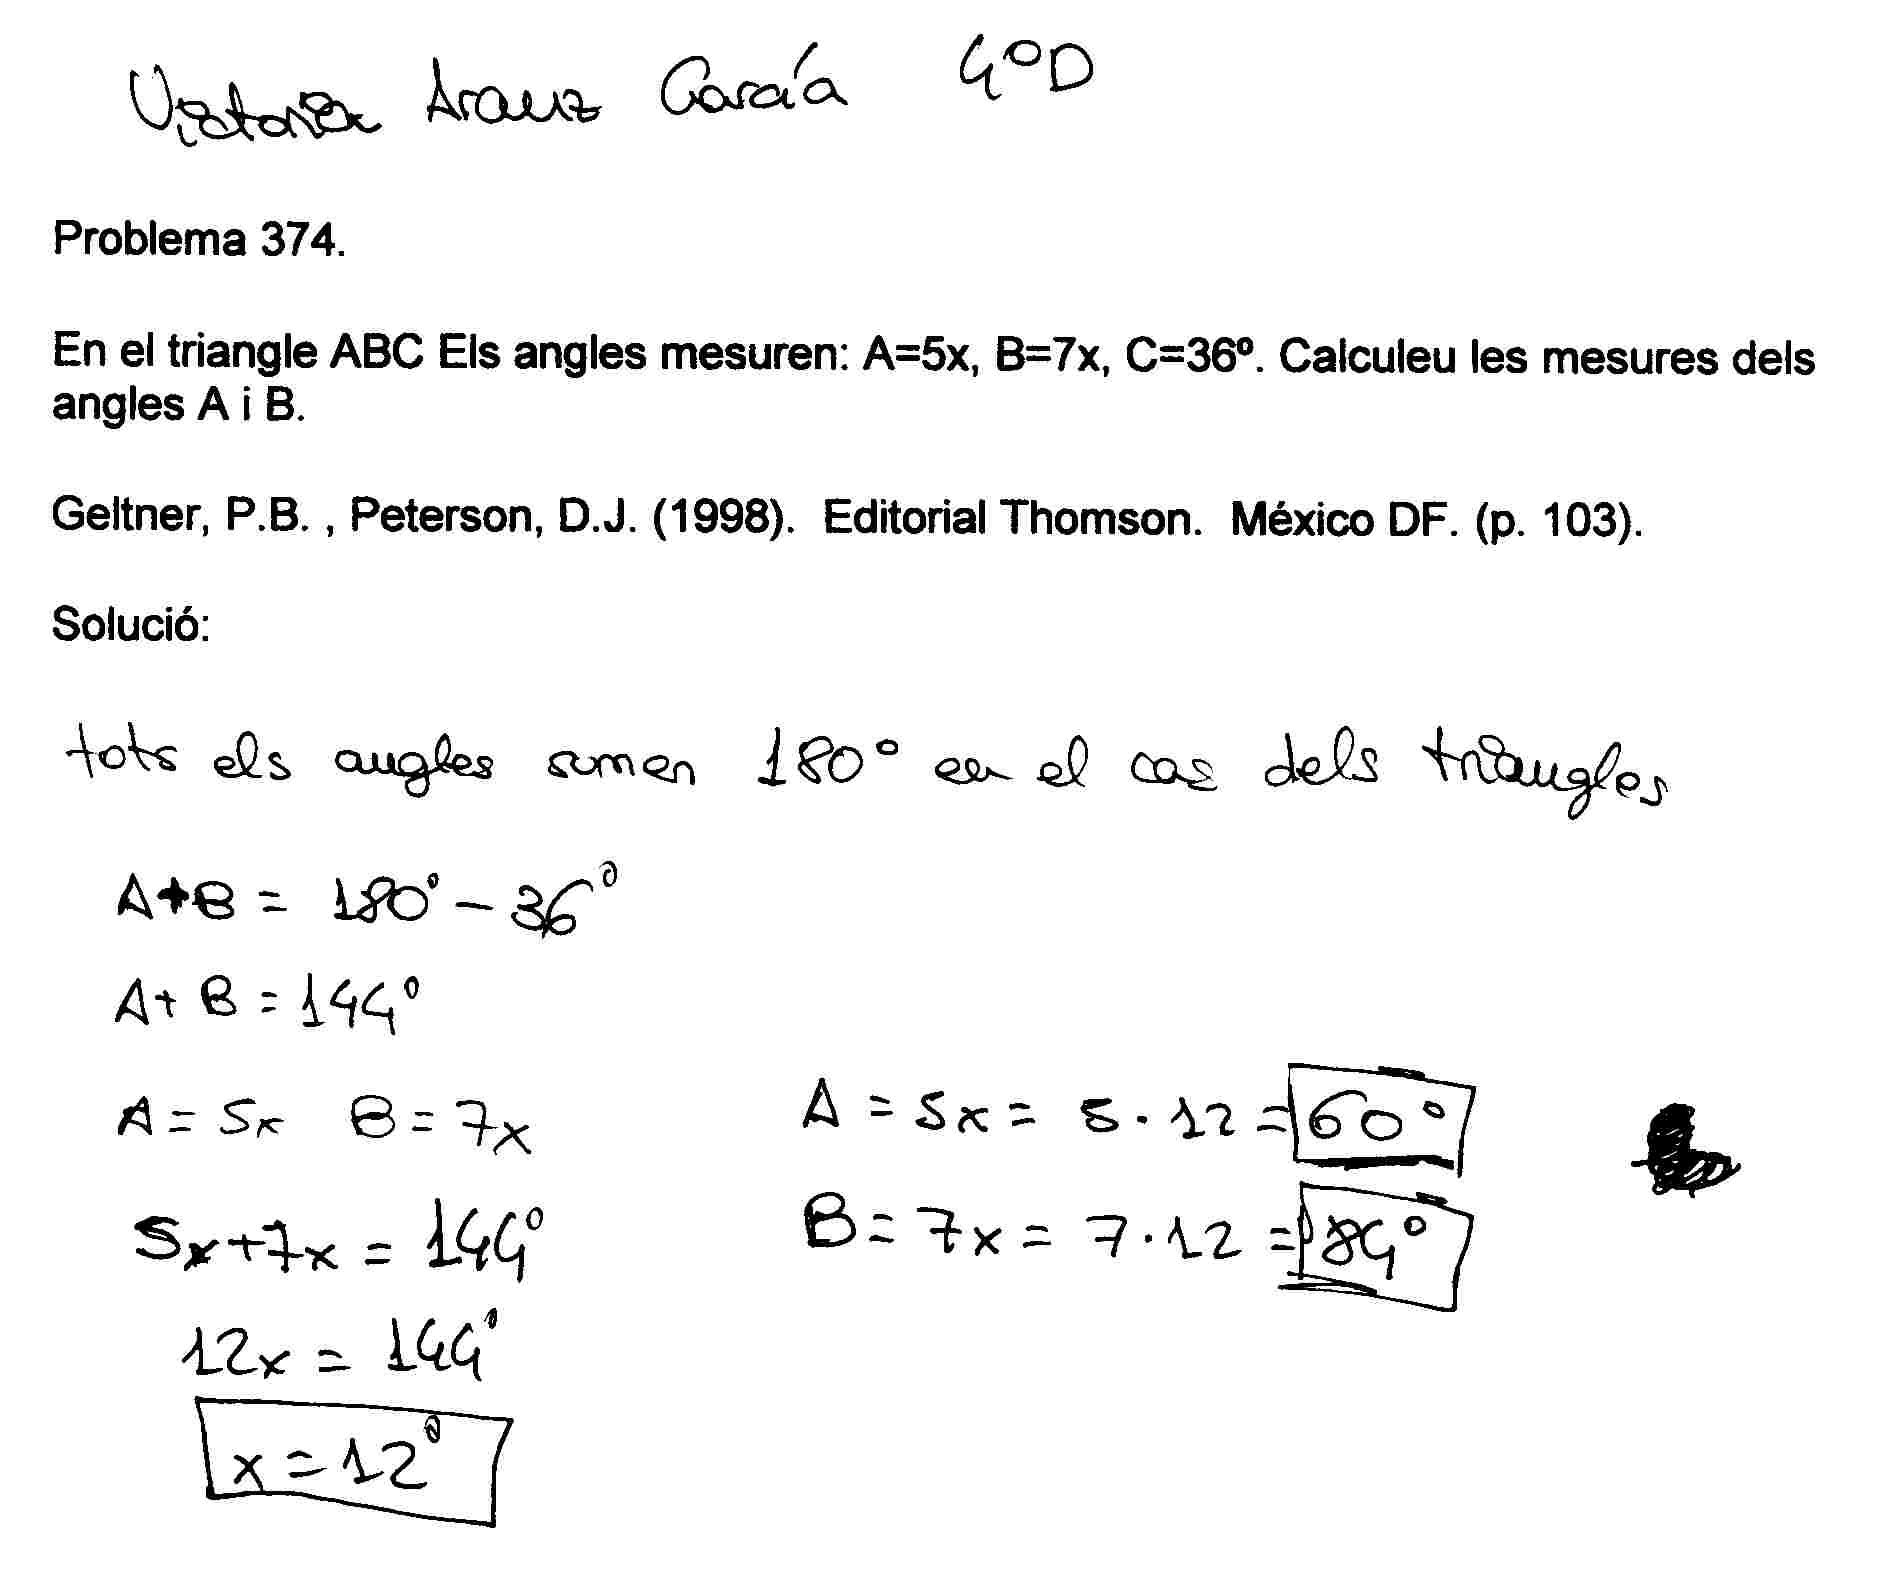 Victoria Arauz García 4ºD
Problema 374.
En el triangle ABC Els angles mesuren: A=5x, B=7x, C=36º. Calculeu les mesures dels
angles A i B.
Geltner, P.B. , Peterson, D.J. (1998). Editorial Thomson. México DF. (p. 103).
Solució:
tots els angles sumen 180° en el cas dels triangles
A+B = 180° - 36°
A+ B = 144°
A = 5x B = 7x
5x+7x = 144°
12x = 144°
x = 12°
A = 5x = 5·12 = 60°
B = 7x = 7·12 = 84°